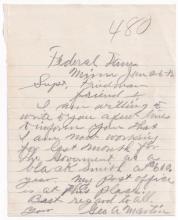 480
Federal Dam
Minn Jan 26-12
Supt. Friedman
Friend
I am writing to
write to you a few lines
to inform you that
I am now working
for last month for
the Government as a
black smith at $60
year. My Post office
is at this place.
Best regard to all.
Geo A Martin